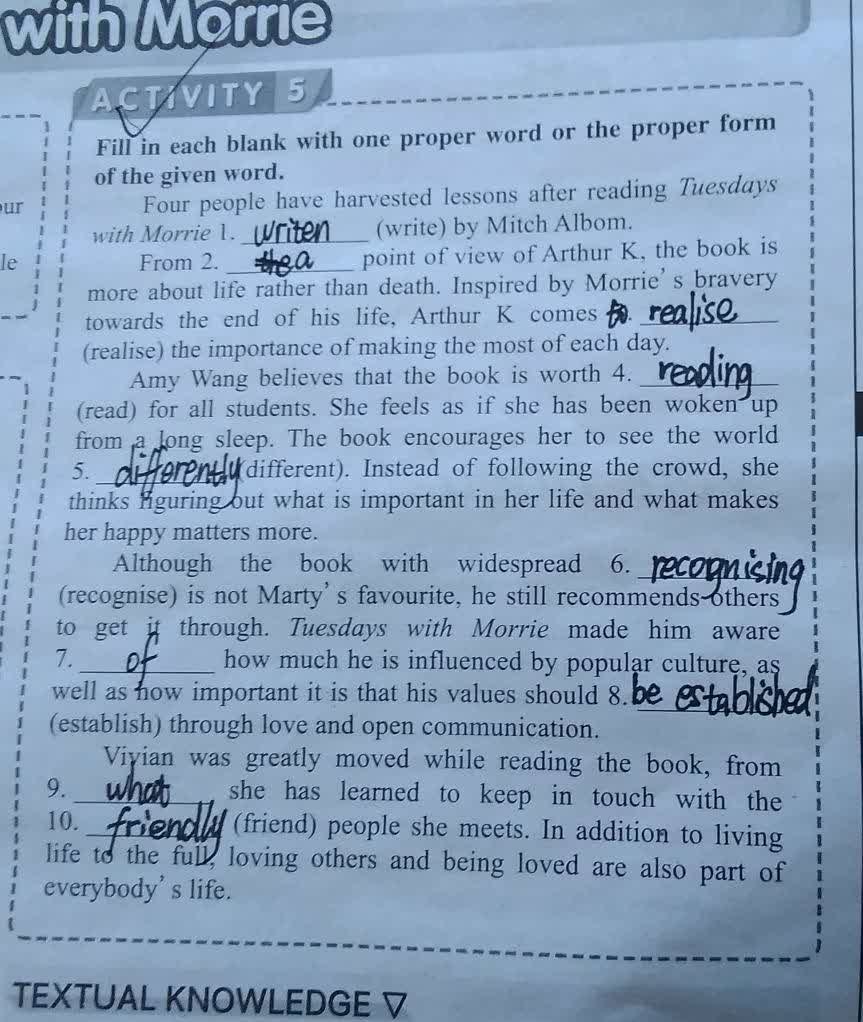 with Morrie
ACTIVITY 5
Fill in each blank with one proper word or the proper form
of the given word.
our
Four people have harvested lessons after reading Tuesdays
with Morrie 1. writen (write) by Mitch Albom.
le
From 2. a point of view of Arthur K, the book is
more about life rather than death. Inspired by Morrie's bravery
towards the end of his life, Arthur K comes to realise
(realise) the importance of making the most of each day.
Amy Wang believes that the book is worth 4. reading
(read) for all students. She feels as if she has been woken up
from a long sleep. The book encourages her to see the world
5. differently (different). Instead of following the crowd, she
thinks figuring out what is important in her life and what makes
her happy matters more.
Although the book with widespread 6. recognising
(recognise) is not Marty's favourite, he still recommends others
to get it through. Tuesdays with Morrie made him aware
7. of how much he is influenced by popular culture, as
well as how important it is that his values should 8. be established
(establish) through love and open communication.
Vivian was greatly moved while reading the book, from
9. what she has learned to keep in touch with the
10. friendly (friend) people she meets. In addition to living
life to the full, loving others and being loved are also part of
everybody's life.
TEXTUAL KNOWLEDGE ▽